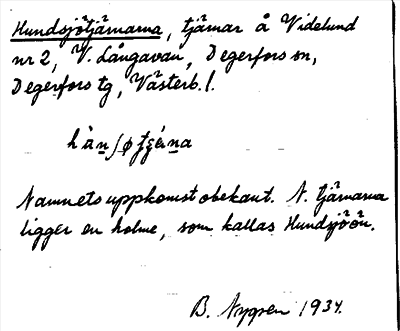 Hundsjötjärnarna, tjärnar å Videlund
nr 2, V. Långavan, Degerfors sn,
Degerfors tg, Västerb. l.
Namnets uppkomst obekant. N. tjärnarna
ligger en holme, som kallas Hundsjöön.
B. Nygren 1934.